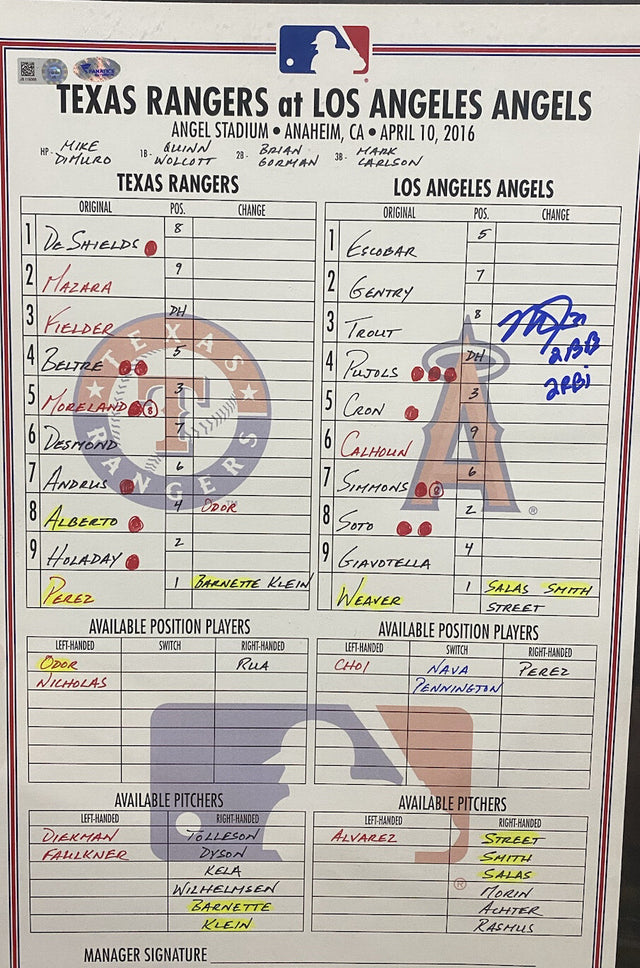 FANATICS
TEXAS RANGERS at LOS ANGELES ANGELS
ANGEL STADIUM • ANAHEIM, CA • APRIL 10, 2016
HP- MIKE DIMURO 1B- QUINN WOLCOTT 2B- BRIAN GORMAN 3B- MARK CARLSON
TEXAS RANGERS
ORIGINAL POS. CHANGE
1 DESHIELDS 8
2 MAZARA 9
3 FIELDER DH
4 BELTRE 5
5 MORELAND 8 3
6 DESMOND 7
7 ANDRUS 6
8 ALBERTO 4 ODOR
9 HOLADAY 2
PEREZ 1 BARNETTE KLEIN
TEXAS
T
RANGERS
LOS ANGELES ANGELS
ORIGINAL POS. CHANGE
1 ESCOBAR 5
2 GENTRY 7
3 TROUT 8
4 PUJOLS DH
5 CRON 3
6 CALHOUN 9
7 SIMMONS 8 6
8 SOTO 2
9 GIAVOTELLA 4
WEAVER 1 SALAS SMITH
STREET
27
2BB
2RBi
A
®
AVAILABLE POSITION PLAYERS
LEFT-HANDED SWITCH RIGHT-HANDED
ODOR RUA
NICHOLAS
AVAILABLE POSITION PLAYERS
LEFT-HANDED SWITCH RIGHT-HANDED
CHOI NAVA PEREZ
PENNINGTON
AVAILABLE PITCHERS
LEFT-HANDED RIGHT-HANDED
DIEKMAN TOLLESON
FAULKNER DYSON
KELA
WILHELMSEN
BARNETTE
KLEIN
AVAILABLE PITCHERS
LEFT-HANDED RIGHT-HANDED
ALVAREZ STREET
SMITH
SALAS
MORIN
ACHTER
RASMUS
®
MANAGER SIGNATURE